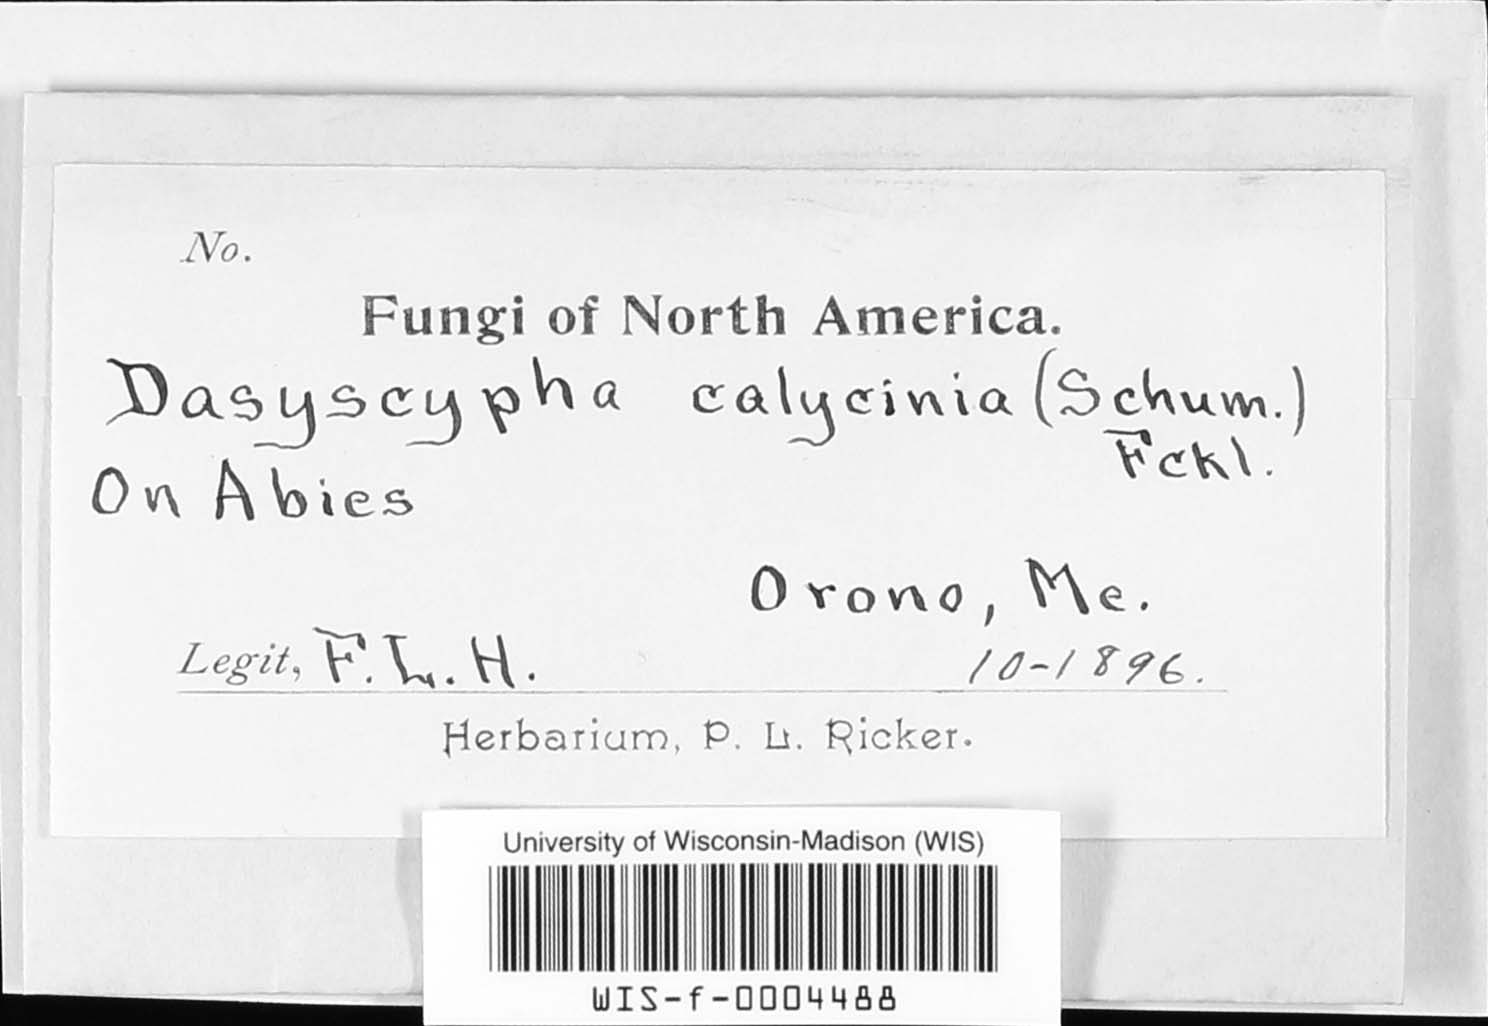 No.
Fungi of North America.
Dasyscypha calycinia (Schum.)
Fckl.
On Abies
Orono, Me.
Legit, F. L. H. 10-1896.
Herbarium, P. L. Ricker.
University of Wisconsin-Madison (WIS)
WIS-f-0004488